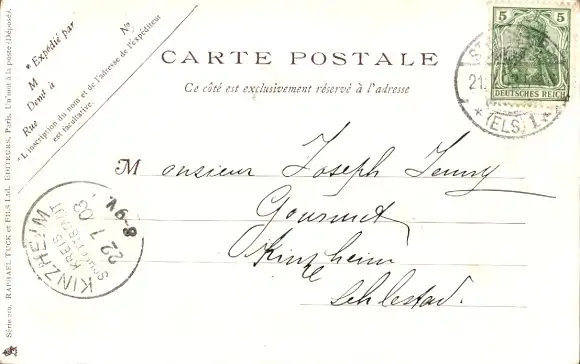 CARTE POSTALE
Ce côté est exclusivement réservé à l'adresse
* Expédié par
M No
Demt à
Rue
*L'inscription du nom et de l'adresse de l'expéditeur
est facultative.
5 5
DEUTSCHES REICH
21.
* (ELS) 1. *
Monsieur Joseph Jenny
Gourmet
Kinzheim
Schlestad.
KINZHEIM
KREIS
SCHLETTSTADT
22 7 03
8-9V.
Série 210. RAPHAEL TUCK ET FILS Ltd. EDITEURS, Paris. Un mot à la poste (Déposé).